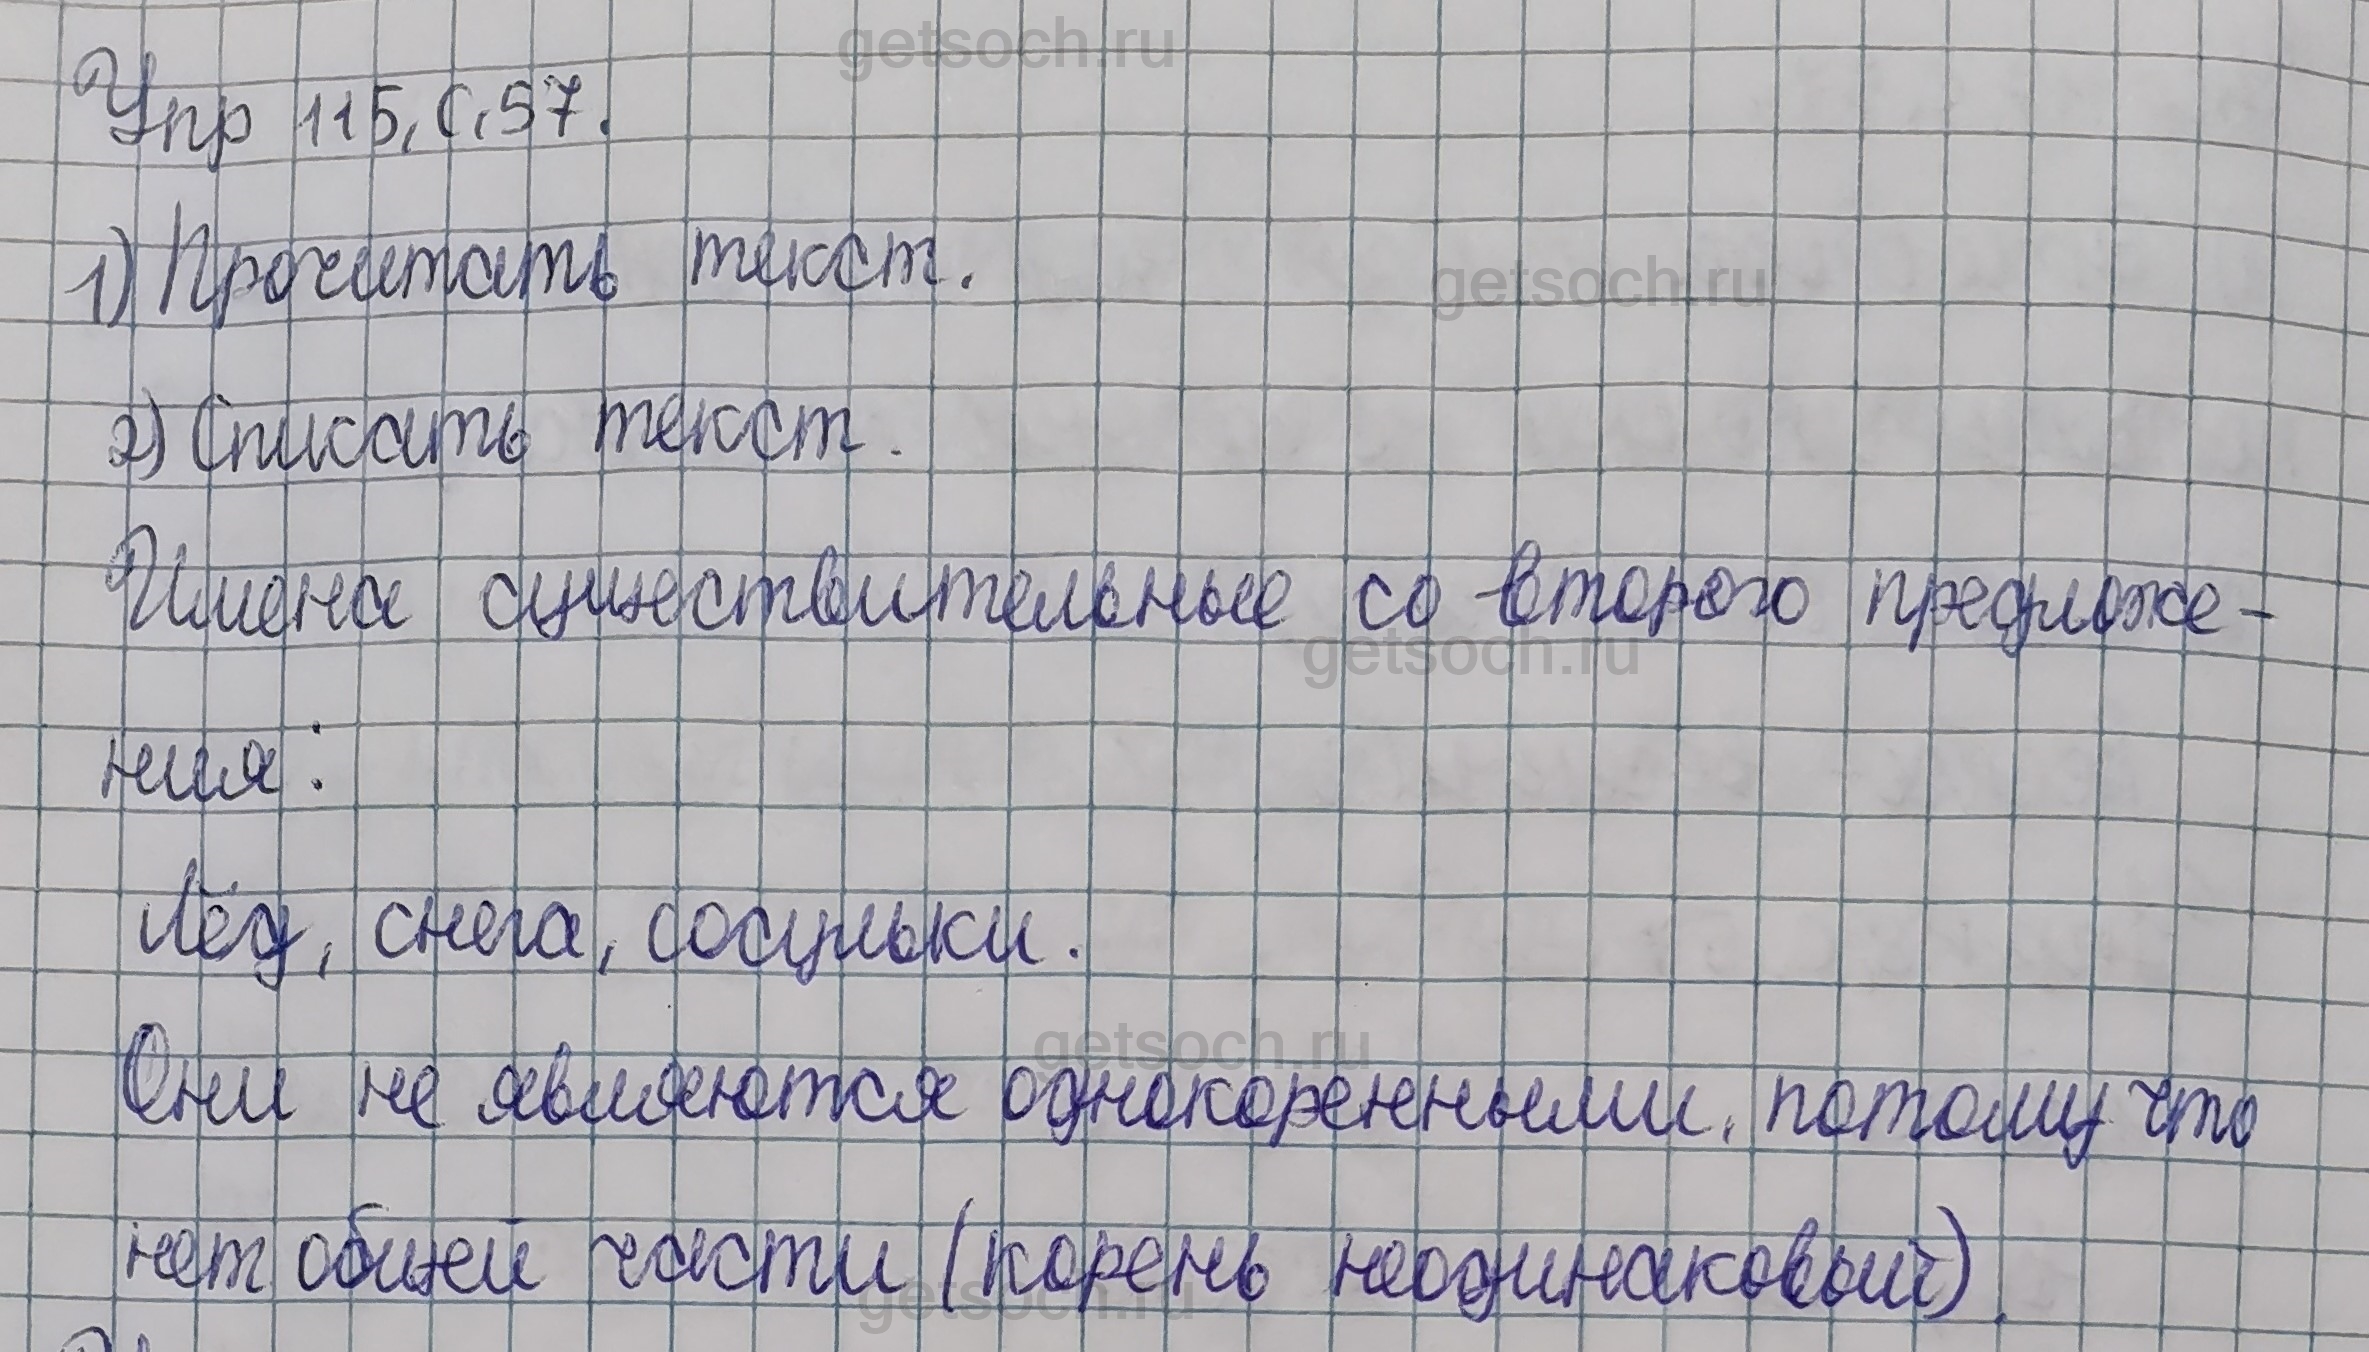 getsoch.ru
Упр 115, с, 57.
1) Прочитать текст.
getsoch.ru
2) Списать текст.
Имена существительные со второго предложе-
getsoch.ru
ния:
Лёд, снега, сосульки.
getsoch.ru
Они не являются однокоренными, потому что
нет общей части (корень неодинаковый).
getsoch.ru